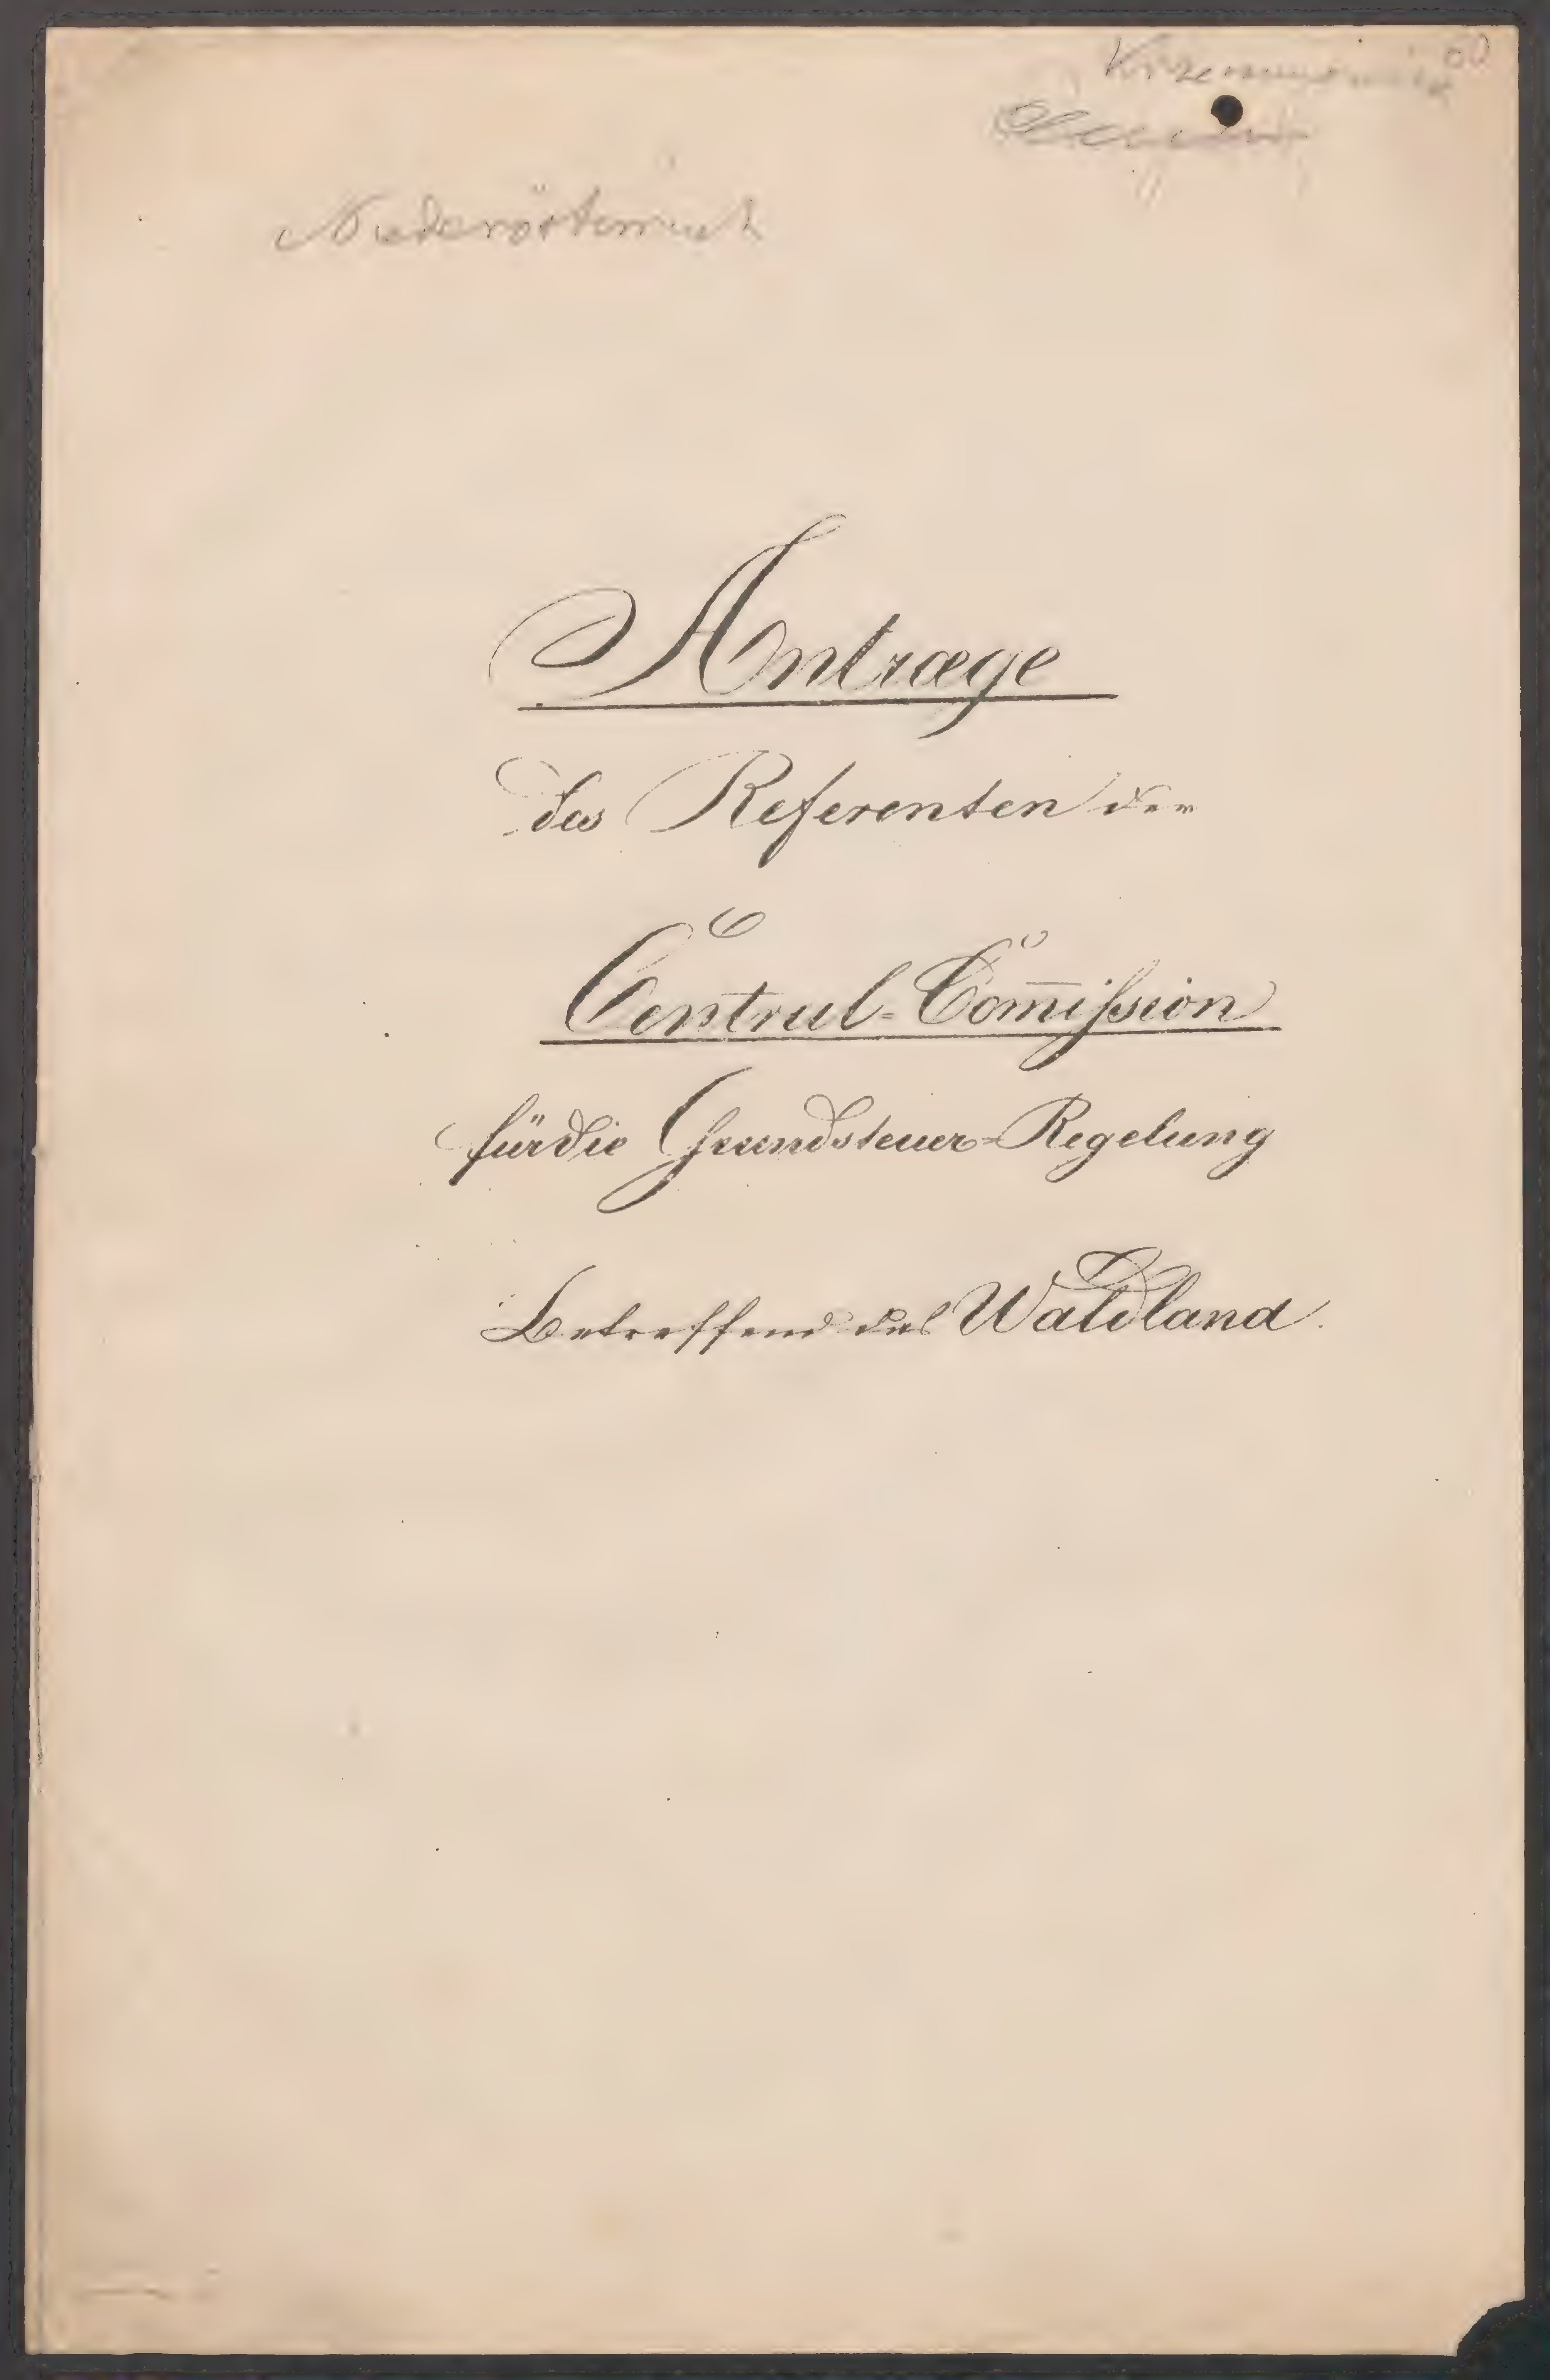 Niederösterreich
Antraege
des Referenten der
Central-Com̄ißion
für die Grundsteuer-Regelung
Betreffend das Waldland.